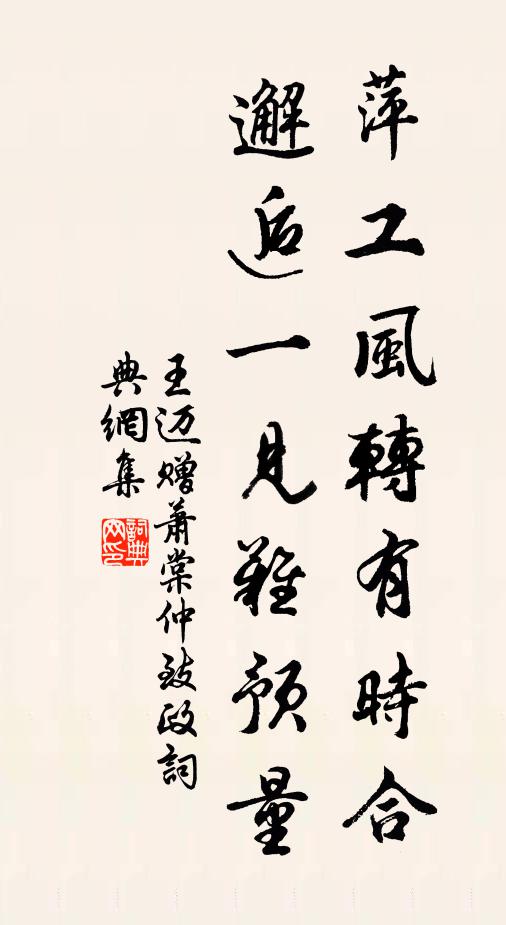 萍工風轉有時合
邂逅一見難預量
王迈赠蕭棠仲致政詞
典網集
詞典網印